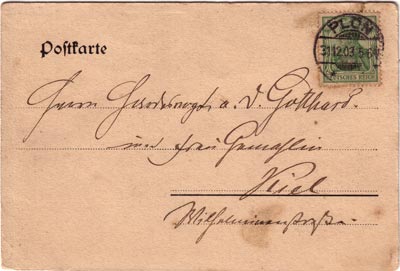 PLÖN
Postkarte
31.12.03
DEUTSCHES REICH
Herrn Landesvogt a. D. Gotthard
und Frau Gemahlin
Kiel
Wilhelminenstraße